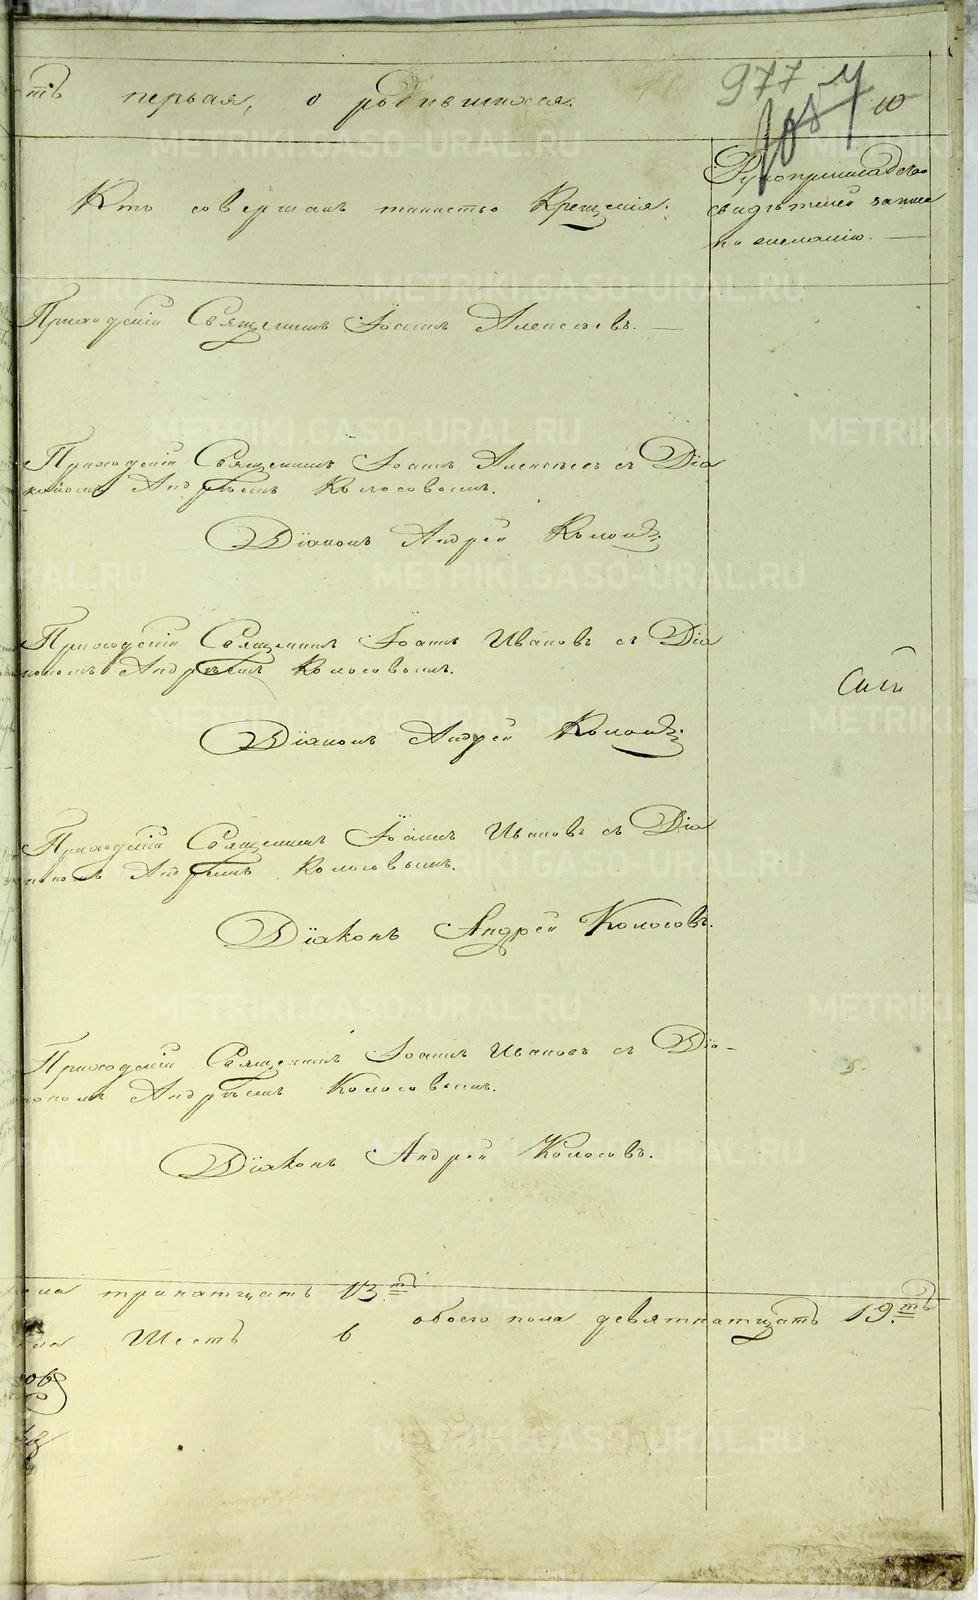 977
ть первая, о родившихся. 10
Кто совершалъ таинство Крещенія. Рукоприкладство
свидѣтелей записи
по желанію.
Приходскій Священникъ Іоаннъ Алексѣевъ.
Приходскій Священникъ Іоаннъ Алексѣевъ съ Діа
кономъ Андрѣемъ Колосовымъ.
Діаконъ Андрей Колосовъ.
Приходскій Священникъ Іоаннъ Ивановъ съ Діа
кономъ Андрѣемъ Колосовымъ.
Діаконъ Андрей Колосовъ.
Приходскій Священникъ Іоаннъ Ивановъ съ Діа
кономъ Андрѣемъ Колосовымъ.
Діаконъ Андрей Колосовъ.
Приходскій Священникъ Іоаннъ Ивановъ съ Діа-
кономъ Андрѣемъ Колосовымъ.
Діаконъ Андрей Колосовъ.
пола тринатцать 13.ть
обоего пола девятнатцать 19.ть
пола Шесть 6
METRIKI.GASO-URAL.RU